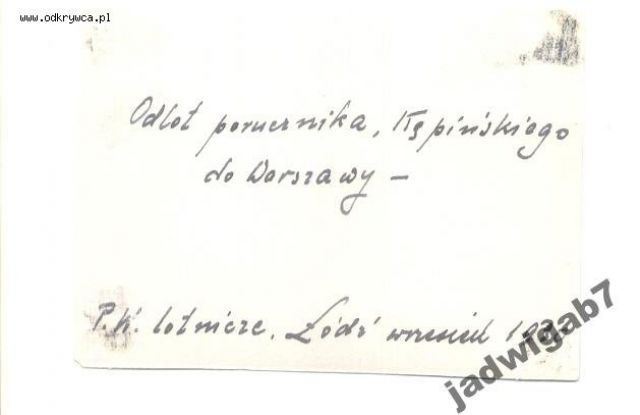 www.odkrywca.pl
Odlot porucznika, Kępińskiego
do Warszawy –
P.W. lotnicze. Łódź wrzesień
jadwigab7